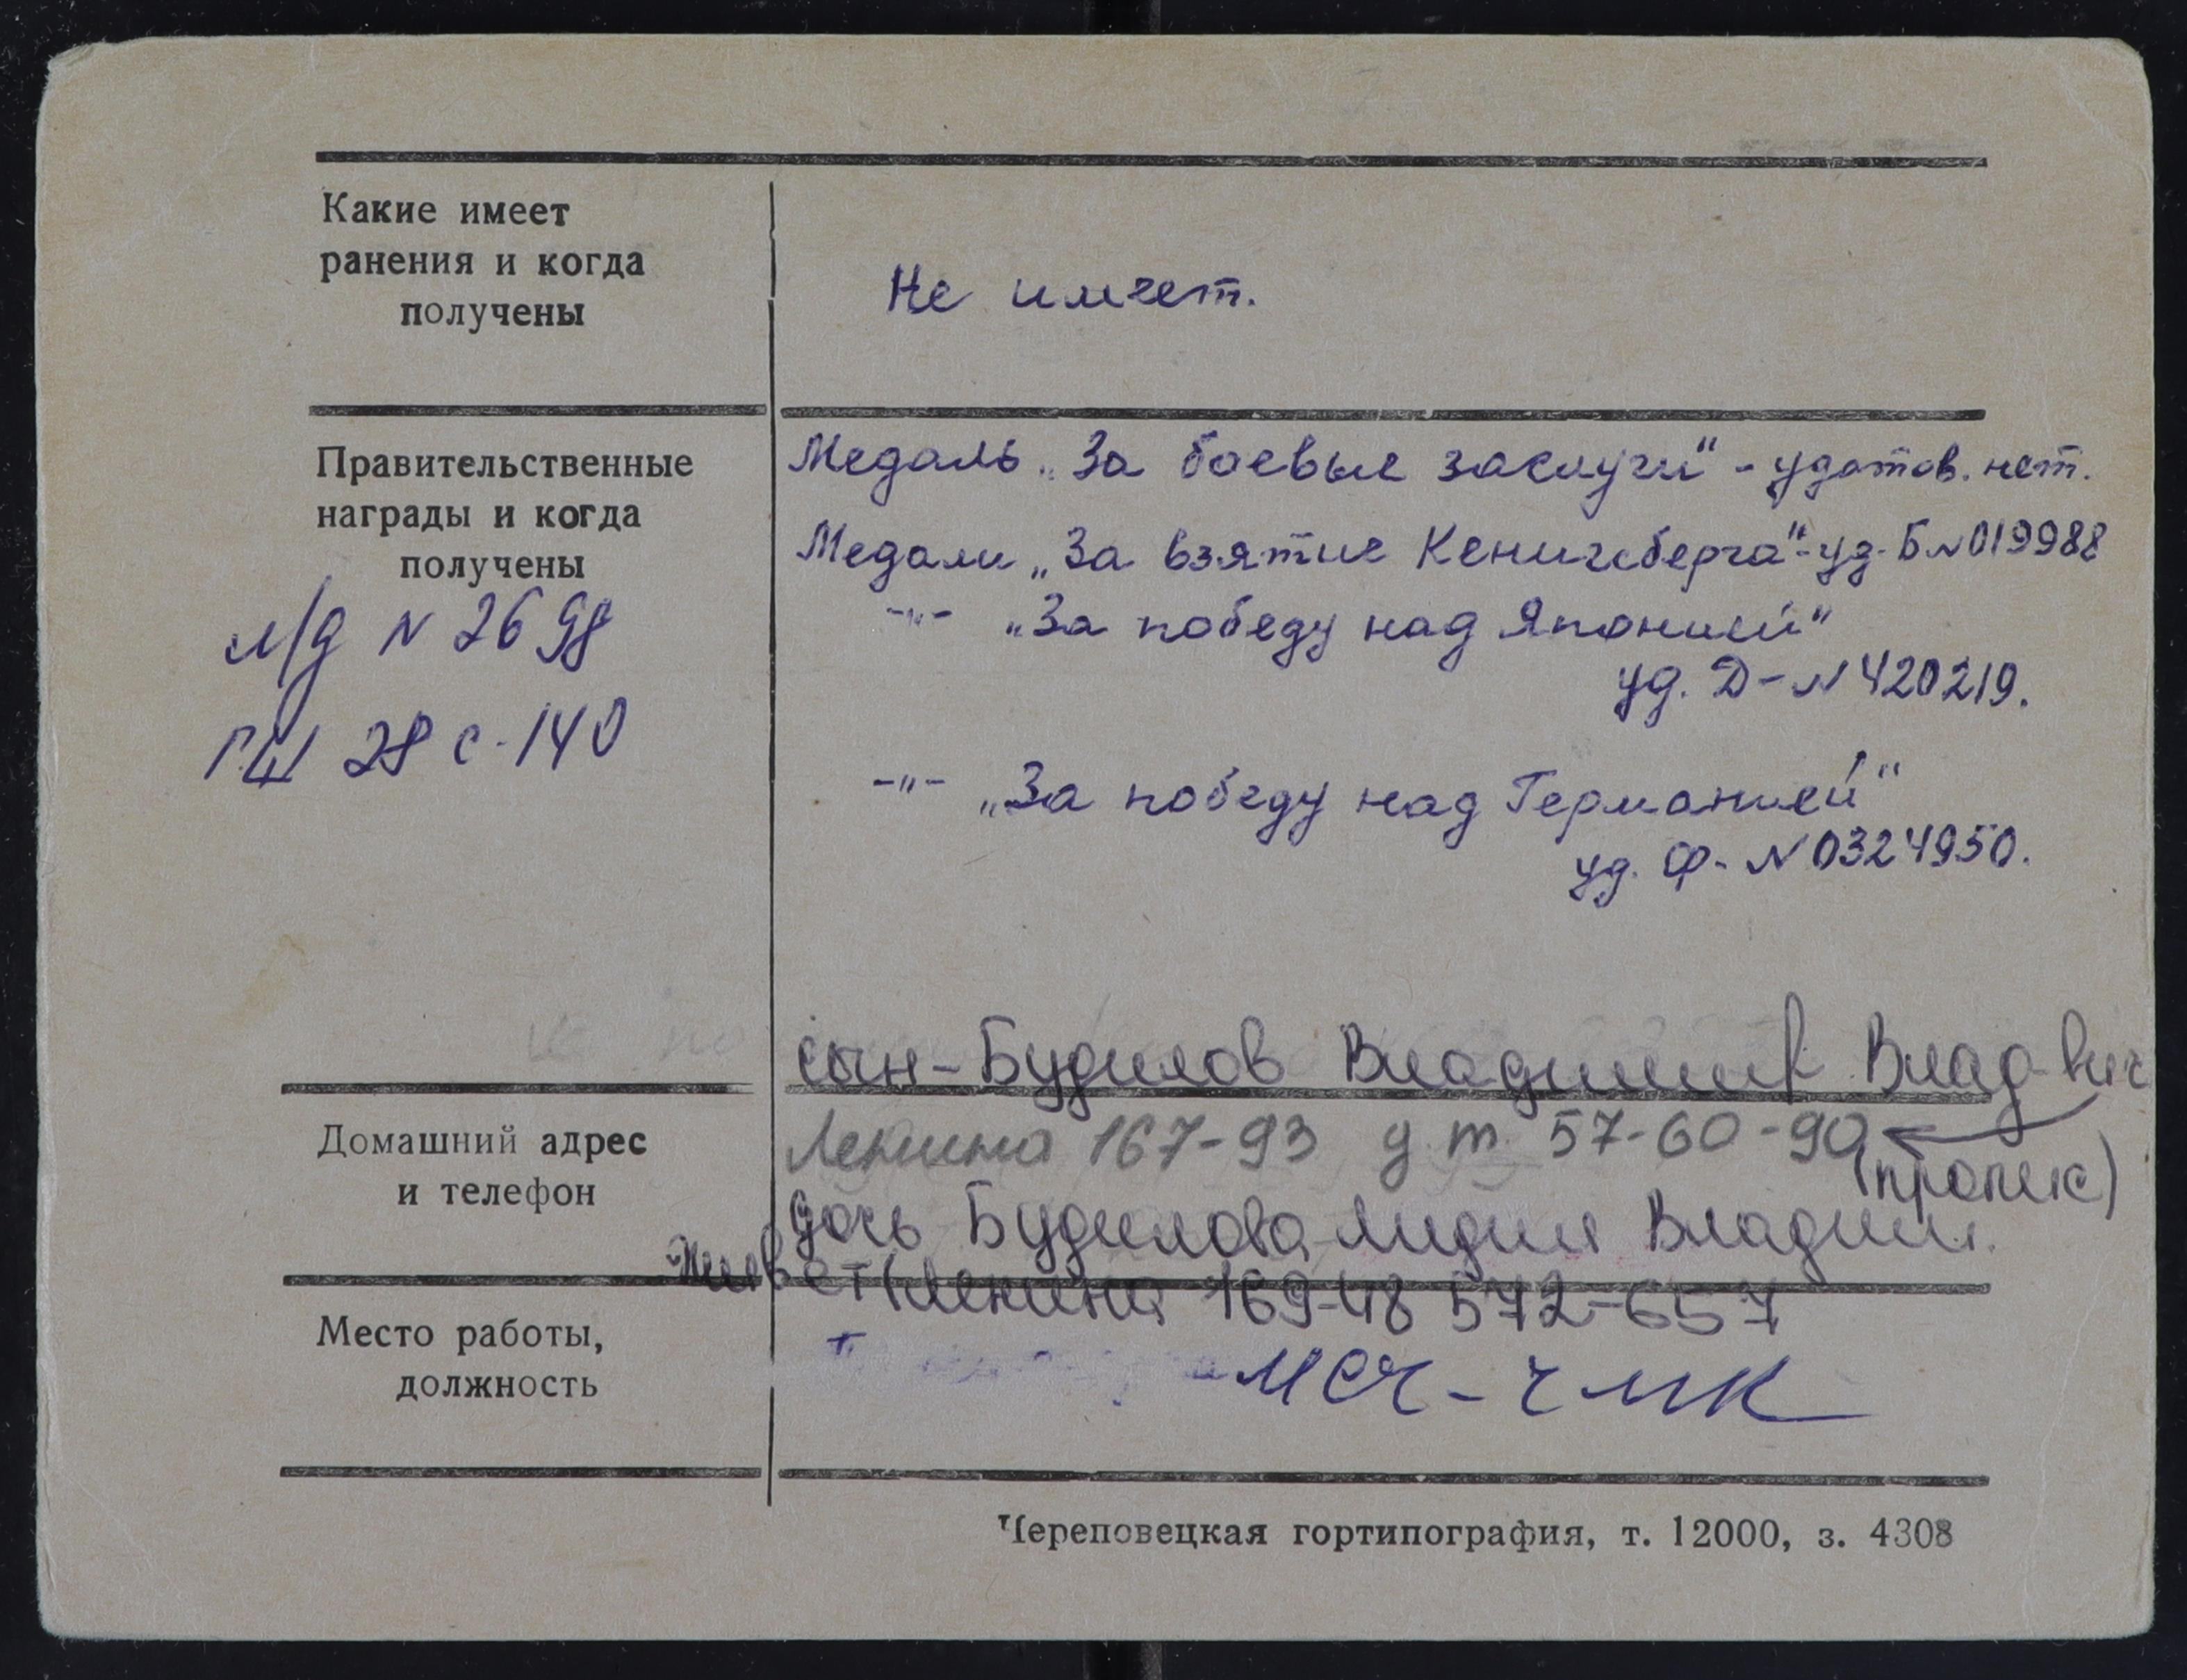 Какие имеет
ранения и когда
получены
Не имеет.
Правительственные
награды и когда
получены
Медаль „За боевые заслуги" - удостов. нет.
Медали „За взятие Кенигсберга" - уд. Б N 019988
-"- „За победу над Японией"
уд. Д - N 420219.
-"- „За победу над Германией"
уд. Ф - N 0324950.
М/д N 2698
ПШ 28 с-140
сын - Будилов Владимир Влад-вич
Домашний адрес
и телефон
Ленина 167-93 д т 57-60-90
(пропис)
дочь Будилова Лидия Владим.
живет Ленина 169-48 572-657
Место работы,
должность
МСЧ - ЧМК
Череповецкая гортипография, т. 12000, з. 4308